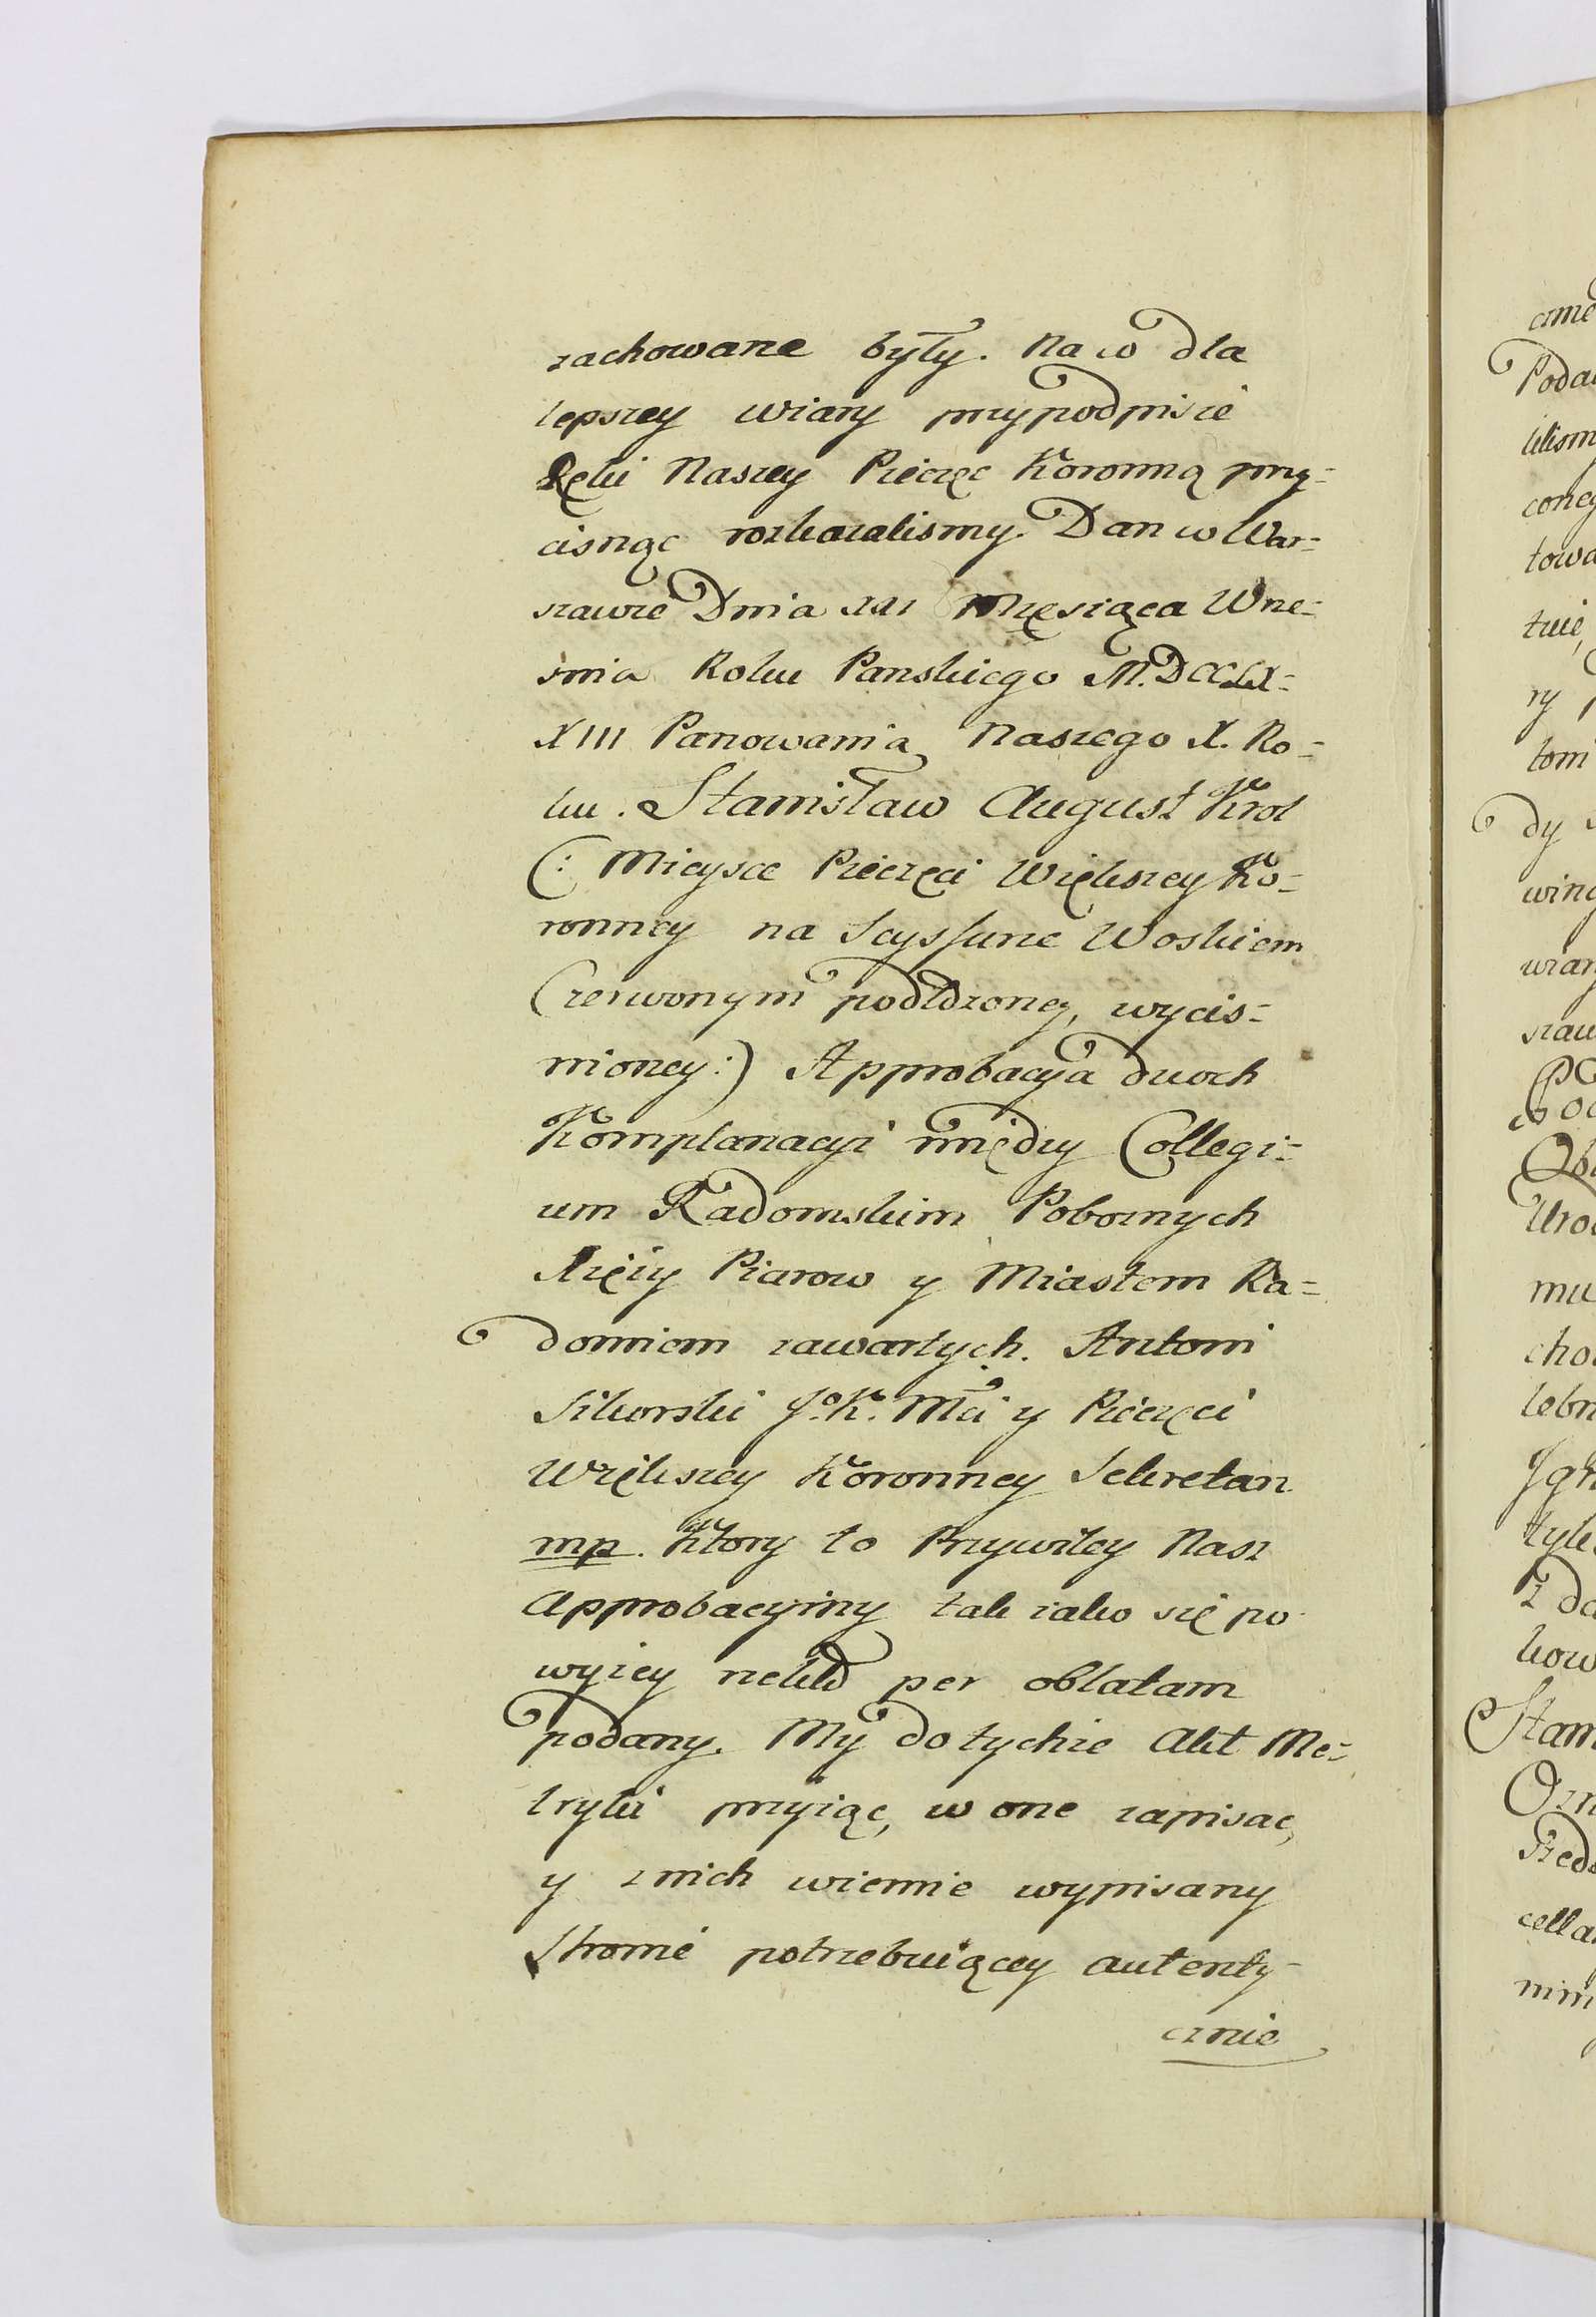 zachowane były. Na co dla
lepszey wiary przy podpisie
Ręki Naszey Pieczęc Koronną przy=
cisnąc rozkazalismy. Dan w War=
szawie Dnia XXI Miesiąca Wrze=
snia Roku Panskiego M.DCCLX=
XIII Panowania Naszego X. Ro=
ku. Stanisław August Krol
(: Mieysce Pieczęci Większey Ko=
ronney na Scyssurze Woskiem
Czerwonym podłdzoney, wycis=
nioney:) Approbacya dwoch
Komplanacyi między Collegi=
um Radomskim Pobornych
Xięży Piarow y Miastem Ra=
domiem zawartych. Antoni
Sikorski J. K. Mci y Pieczęci
Większey Koronney Sekretarz
mp. Ktory to Przywiley Nasz
Approbacyiny tak iako się po
wyżey rzekło per oblatam
podany. My do tychże Akt Me=
tryki przyiąc, w one zapisac,
y z nich wiernie wypisany
Stronie potrzebuiącey autenty=
cznie
czne
Poda
liśm
coney
towa
tuię
ry
toni
dy
win
wiar
szaw
Obl
Uro
mu
cho
lebn
Ign
tyk
z do
kow
Stan
Ozn
Szed
cella
nim